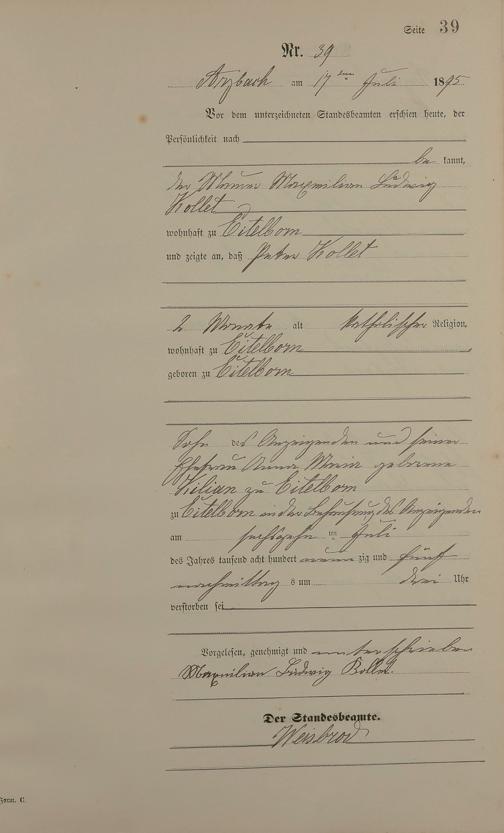 Seite 39
Nr. 39
Arzbach am 17 ten Juli 1895
Vor dem unterzeichneten Standesbeamten erschien heute, der
Persönlichkeit nach
be kannt,
der Maurer Maximilian Ludwig
Kollet
wohnhaft zu Eitelborn
und zeigte an, daß Peter Kollet
2 Monate alt katholischer Religion,
wohnhaft zu Eitelborn
geboren zu Eitelborn
Sohn des Anzeigenden und seiner
Ehefrau Anna Maria geborene
Kilian zu Eitelborn
zu Eitelborn in der Behausung des Anzeigenden
am sechszehn ten Juli
des Jahres tausend acht hundert neun zig und fünf
nachmittag s um drei Uhr
verstorben sei
Vorgelesen, genehmigt und unterschrieben
Maximilian Ludwig Kollet
Der Standesbeamte.
Weisbrod
Form. C.